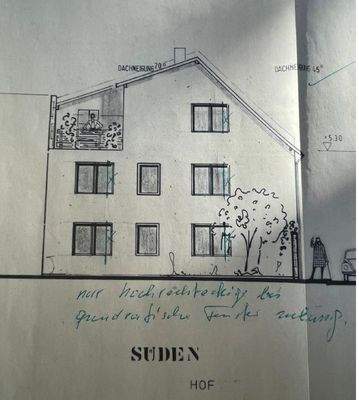 DACHNEIGUNG 20°
DACHNEIGUNG 45°
+5.30
nur hochrechteckige bis
quadratische Fenster zulässig.
SÜDEN
HOF